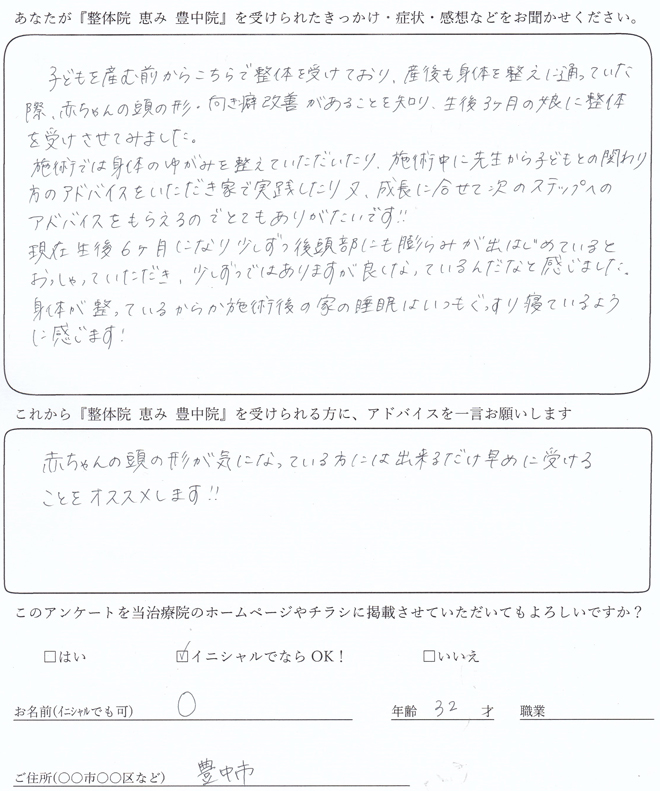 あなたが『整体院 恵み 豊中院』を受けられたきっかけ・症状・感想などをお聞かせください。
子どもを産む前からこちらで整体を受けており、産後も身体を整えに通っていた
際、赤ちゃんの頭の形・向き癖改善があることを知り、生後3ヶ月の娘に整体
を受けさせてみました。
施術では身体のゆがみを整えていただいたり、施術中に先生から子どもとの関わり
方のアドバイスをいただき家で実践したり又、成長に合せて次のステップへの
アドバイスをもらえるのでとてもありがたいです!!
現在生後6ヶ月になり少しずつ後頭部にも膨らみが出はじめていると
おっしゃっていただき、少しずつではありますが良くなっているんだなと感じました。
身体が整っているからか施術後の家の睡眠はいつもぐっすり寝ているよう
に感じます!
これから『整体院 恵み 豊中院』を受けられる方に、アドバイスを一言お願いします
赤ちゃんの頭の形が気になっている方には出来るだけ早めに受ける
ことをオススメします!!
このアンケートを当治療院のホームページやチラシに掲載させていただいてもよろしいですか?
□はい ☑イニシャルでならOK! □いいえ
お名前(イニシャルでも可) O 年齢 32 才 職業
ご住所(○○市○○区など) 豊中市